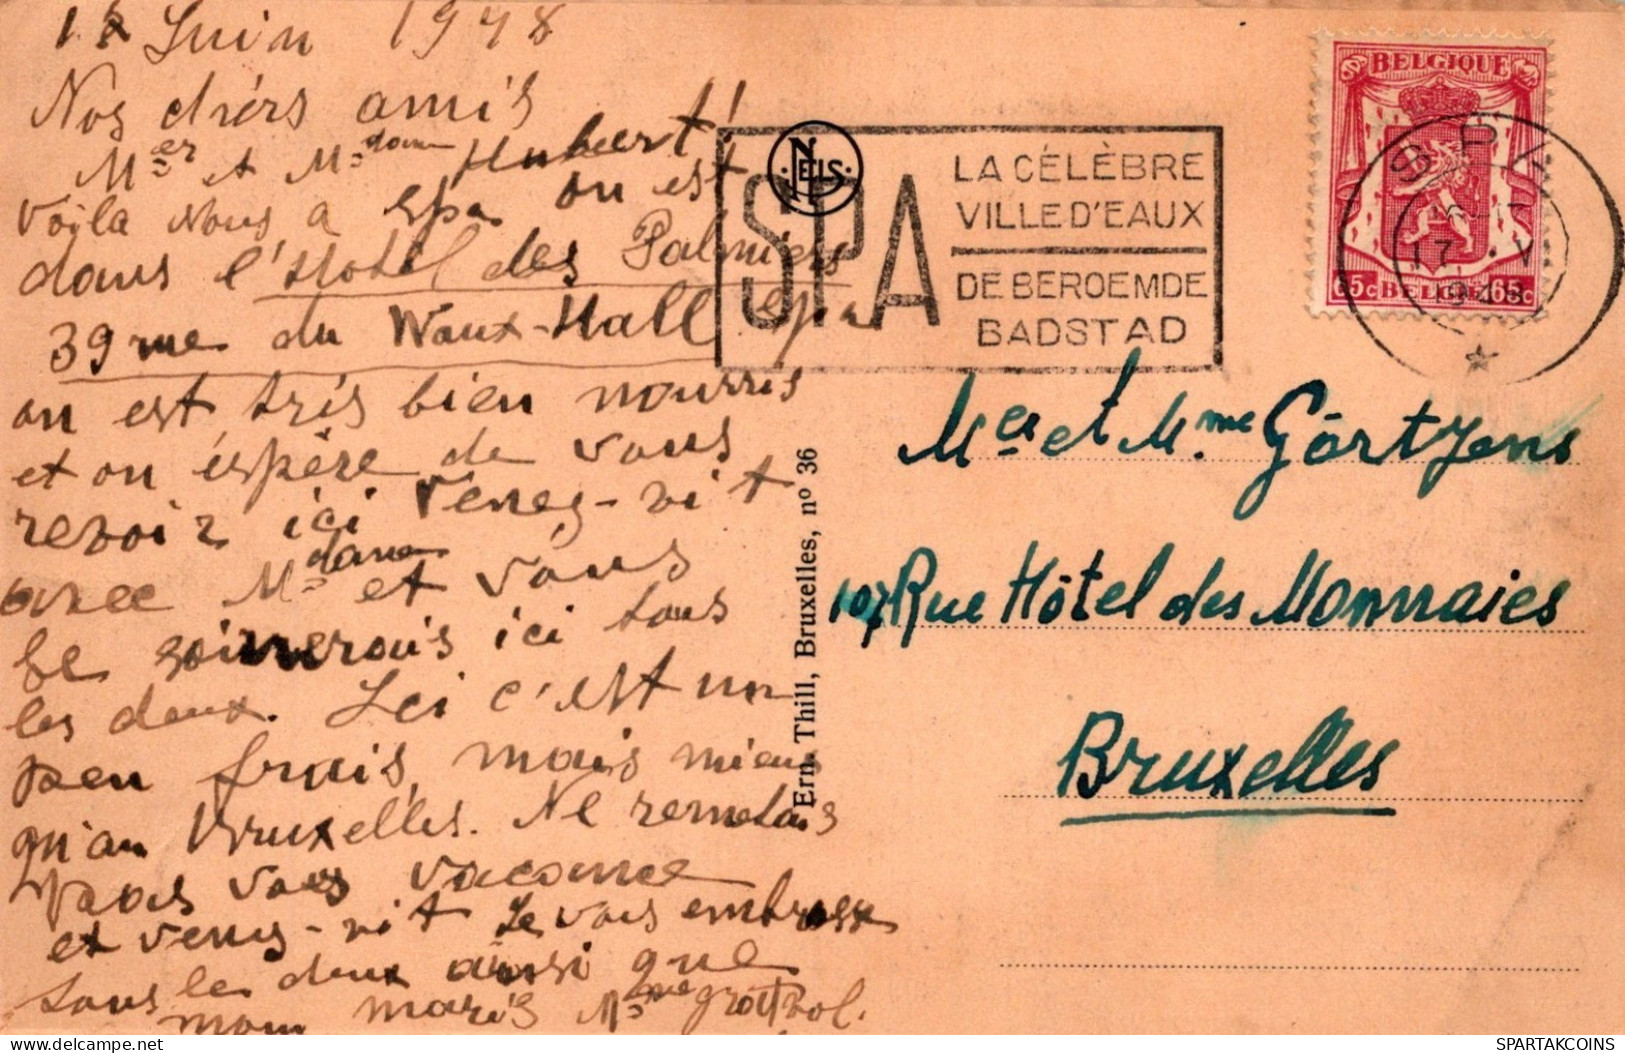 Juin 1948
Nos chérs amis
Mer et Mdame Hubert!
Voila Nous a Spa on est
dans l'Hotel des Palmiers
39 rue du Waux-Hall Spa
on est trés bien nourris
et on éspère de vous
revoir ici Venez-vit
avec Mdame et vous
se soinerais ici tous
les deux. Ici c'est un
peu frais, mais mieux
qu'au Bruxelles. Ne remetais
pas vos vacance
et venez-vit Je vous embrasse
tous les deux ainsi que
mon maris Mme
NELS
SPA
LA CÉLÈBRE
VILLE D'EAUX
DE BEROEMDE
BADSTAD
BELGIQUE
65c BELGIE 65c
SPA
17 V
1948
Ern. Thill, Bruxelles, nº 36
Mer et M.me Görtzens
107 Rue Hôtel des Monnaies
Bruxelles
delcampe.net
SPARTAKCOINS